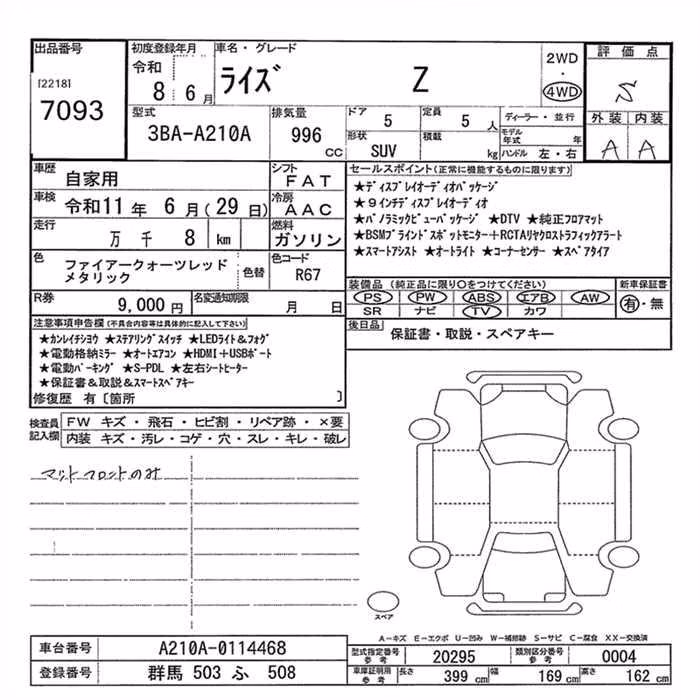 出品番号
[2218]
7093
初度登録年月
令和
8 6月
車名・グレード
ライズ Z
2WD
・
4WD
評価点
S
外装 内装
A A
型式
3BA-A210A
排気量
996
CC
ドア
5
定員
5 人
形状
SUV
積載
kg
ディーラー・並行
モデル年式 年
ハンドル 左・右
車歴
自家用
シフト
FAT
車検
令和11年 6月(29日)
冷房
AAC
走行
万 千 8 km
燃料
ガソリン
色
ファイアークォーツレッド
メタリック
色替
色コード
R67
R券
9,000円
名変通知期限
月 日
セールスポイント(正常に機能するものに限ります)
★ディスプレイオーディオパッケージ
★9インチディスプレイオーディオ
★パノラミックビューパッケージ ★DTV ★純正フロアマット
★BSMブラインドスポットモニター+RCTAリヤクロストラフィックアラート
★スマートアシスト ★オートライト ★コーナーセンサー ★スペアタイア
装備品 (純正品に限り○をつけてください)
PS PW ABS エアB AW
SR ナビ TV カワ
新車保証書
有・無
後日品
保証書・取説・スペアキー
注意事項申告欄(不具合内容等は具体的に記入して下さい)
★カンレイチシヨウ ★ステアリングスイッチ ★LEDライト&フォグ
★電動格納ミラー ★オートエアコン ★HDMI+USBポート
★電動パーキング ★S-PDL ★左右シートヒーター
★保証書&取説&スマートスペアキー
修復歴 有〔箇所 〕
検査員
記入欄
FW キズ・飛石・ヒビ割・リペア跡・×要
内装 キズ・汚レ・コゲ・穴・スレ・キレ・破レ
マットフロントのみ
スペア
A-キズ E-エクボ U-凹み W-補修跡 S-サビ C-腐食 XX-交換済
車台番号
A210A-0114468
登録番号
群馬 503 ふ 508
型式指定番号
参考
20295
類別区分番号
参考
0004
車庫証明用
参考
長さ
399 cm
幅
169 cm
高さ
162 cm